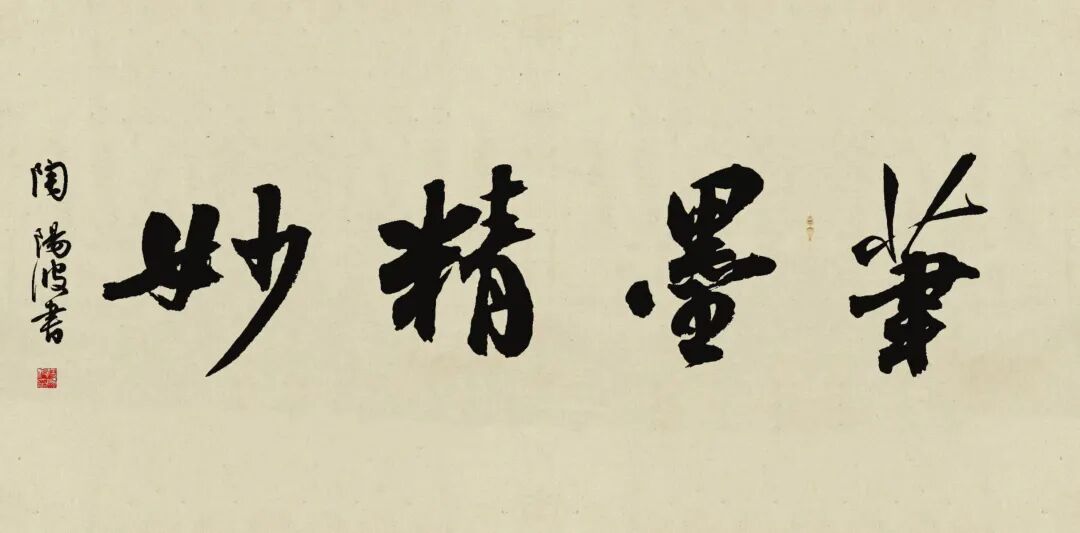 筆墨精妙
陶陽波書